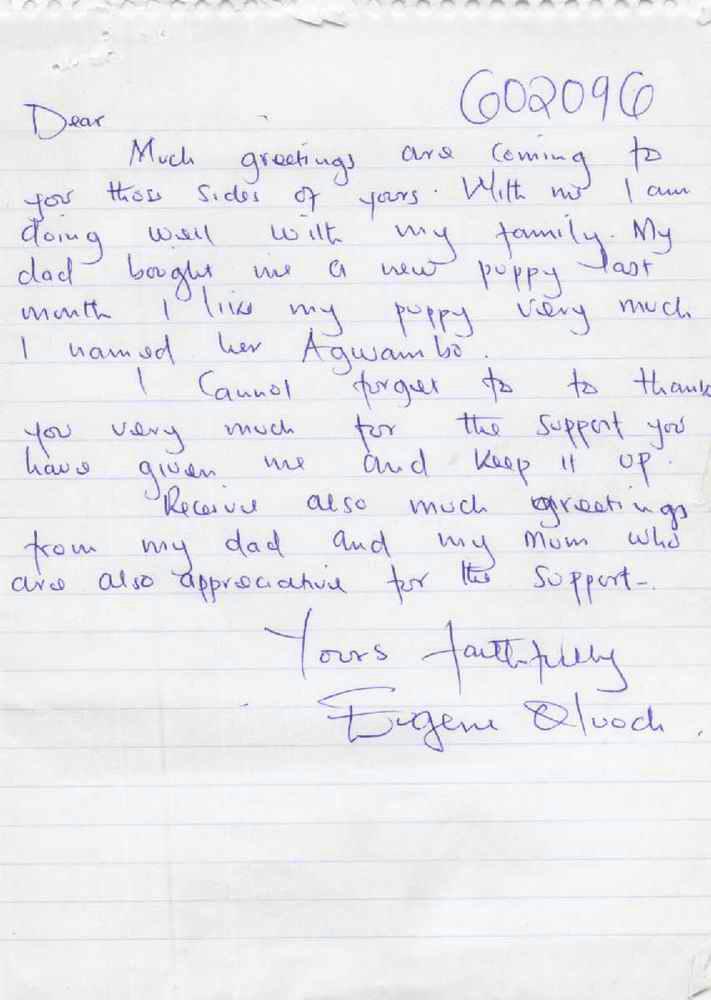 602096
Dear
Much greetings are coming to
you those sides of yours. With me I am
doing well with my family. My
dad bought me a new puppy last
month I like my puppy very much
I named her Agwambo.
I Cannot forget to to thank
you very much for the support you
have given me and keep it up.
Receive also much greetings
from my dad and my Mom who
are also appreciative for the support.
Yours faithfully
Eugene Oluoch.